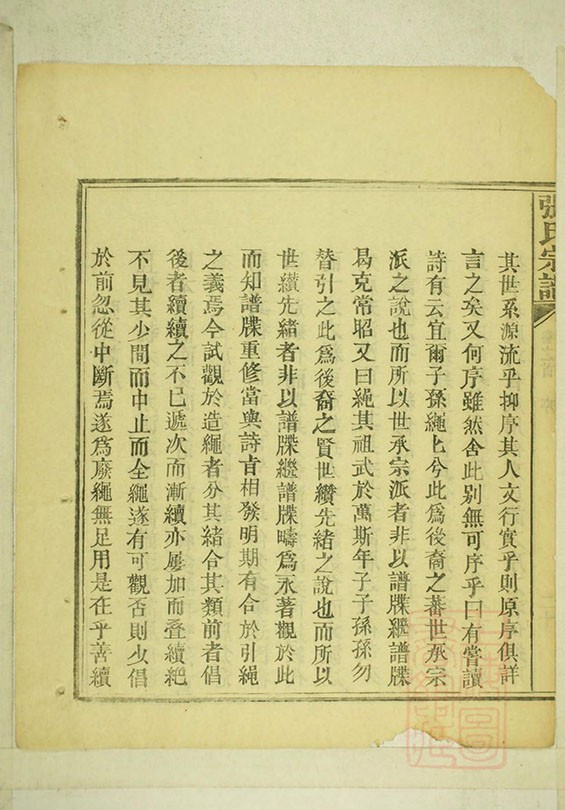 張氏宗譜
其世系源流乎抑序其人文行實乎則原序俱詳
言之矣又何序雖然舍此别無可序乎曰有嘗讀
詩有云宜爾子孫繩匕兮此爲後裔之蕃世承宗
派之說也而所以世承宗派者非以譜牒繼譜牒
曷克常昭又曰繩其祖武於萬斯年子子孫孫勿
替引之此爲後裔之賢世纘先緒之說也而所以
世纘先緒者非以譜牒纘譜牒疇爲永著觀於此
而知譜牒重修當與詩言相發明期有合於引繩
之義焉今試觀於造繩者分其緒合其類前者倡
後者續續之不已遞次而漸續亦屢加而叠續絶
不見其少間而中止而全繩遂有可觀否則少倡
於前忽從中斷焉遂爲廢繩無足用是在乎善續